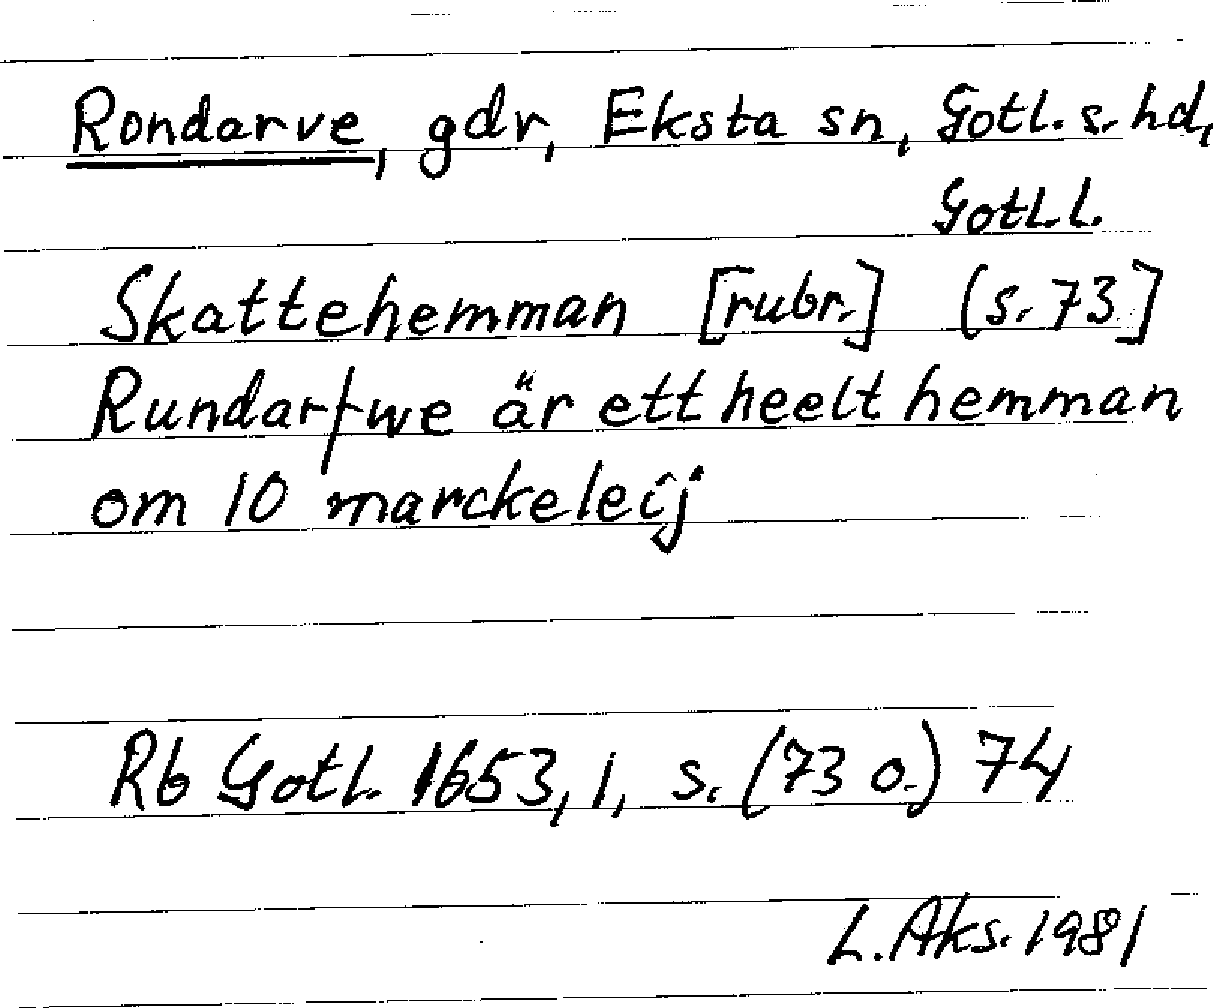 Rondarve, gdr, Eksta sn, Gotl. s. hd,
Gotl. l.
Skattehemman [rubr.] (s. 73]
Rundarfwe är ett heelt hemman
om 10 marckeleij
Rb Gotl. 1653, 1, s. (73 o.) 74
L. Aks. 1981